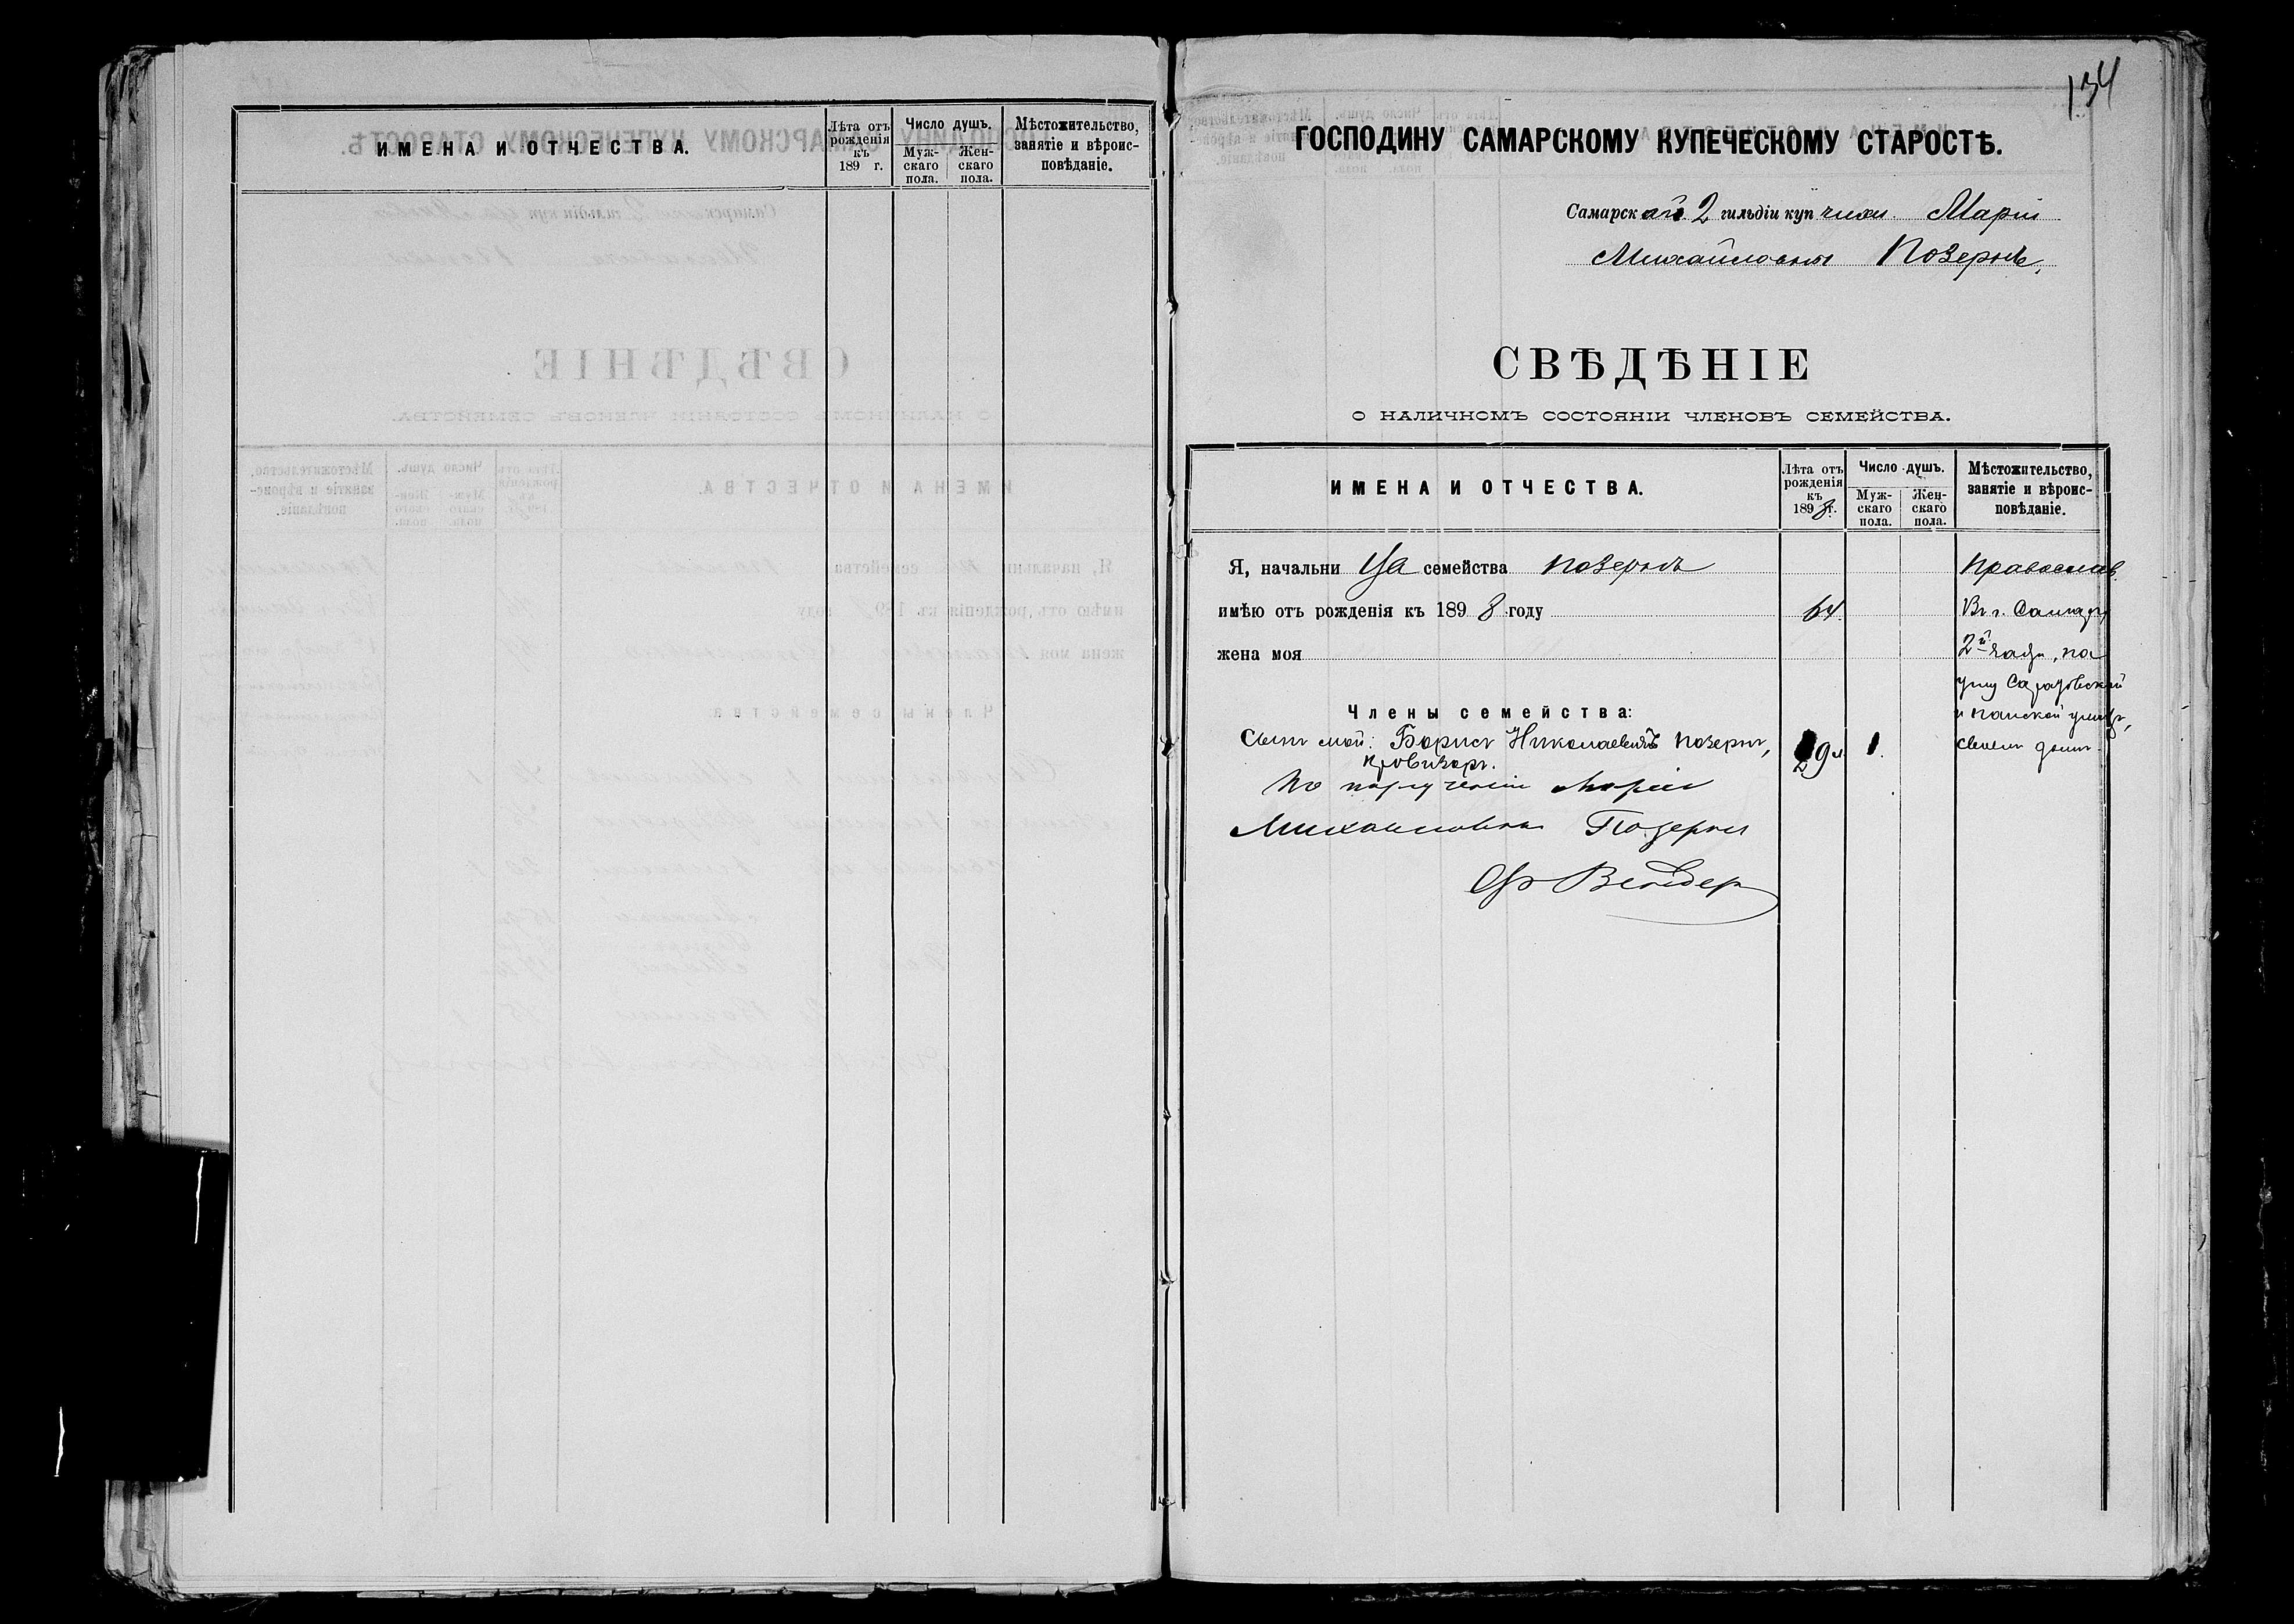 ИМЕНА И ОТЧЕСТВА.
Лѣта отъ рожденія къ 189 г.
Число душъ.
Мужскаго пола.
Женскаго пола.
Мѣстожительство, занятіе и вѣроисповѣданіе.
134
ГОСПОДИНУ САМАРСКОМУ КУПЕЧЕСКОМУ СТАРОСТѢ.
Самарской 2 гильдіи купчихи Маріи
Михайловны Позернъ,
СВѢДѢНІЕ
О НАЛИЧНОМЪ СОСТОЯНІИ ЧЛЕНОВЪ СЕМЕЙСТВА.
ИМЕНА И ОТЧЕСТВА.
Лѣта отъ
рожденія
къ
1898 г.
Число душъ.
Муж-
скаго
пола.
Жен-
скаго
пола.
Мѣстожительство,
занятіе и вѣроис-
повѣданіе.
Я, начальница семейства Позернъ
Православ.
имѣю отъ рожденія къ 1898 году 64.
Въ г. Самарѣ,
жена моя
2й части, на
углу Саратовской
Члены семейства:
и Панской улицъ,
Сынъ мой: Борисъ Николаевичъ Позернъ, 29 1.
своемъ домѣ.
провизоръ.
По порученію Маріи
Михайловны Позернъ
Вендер